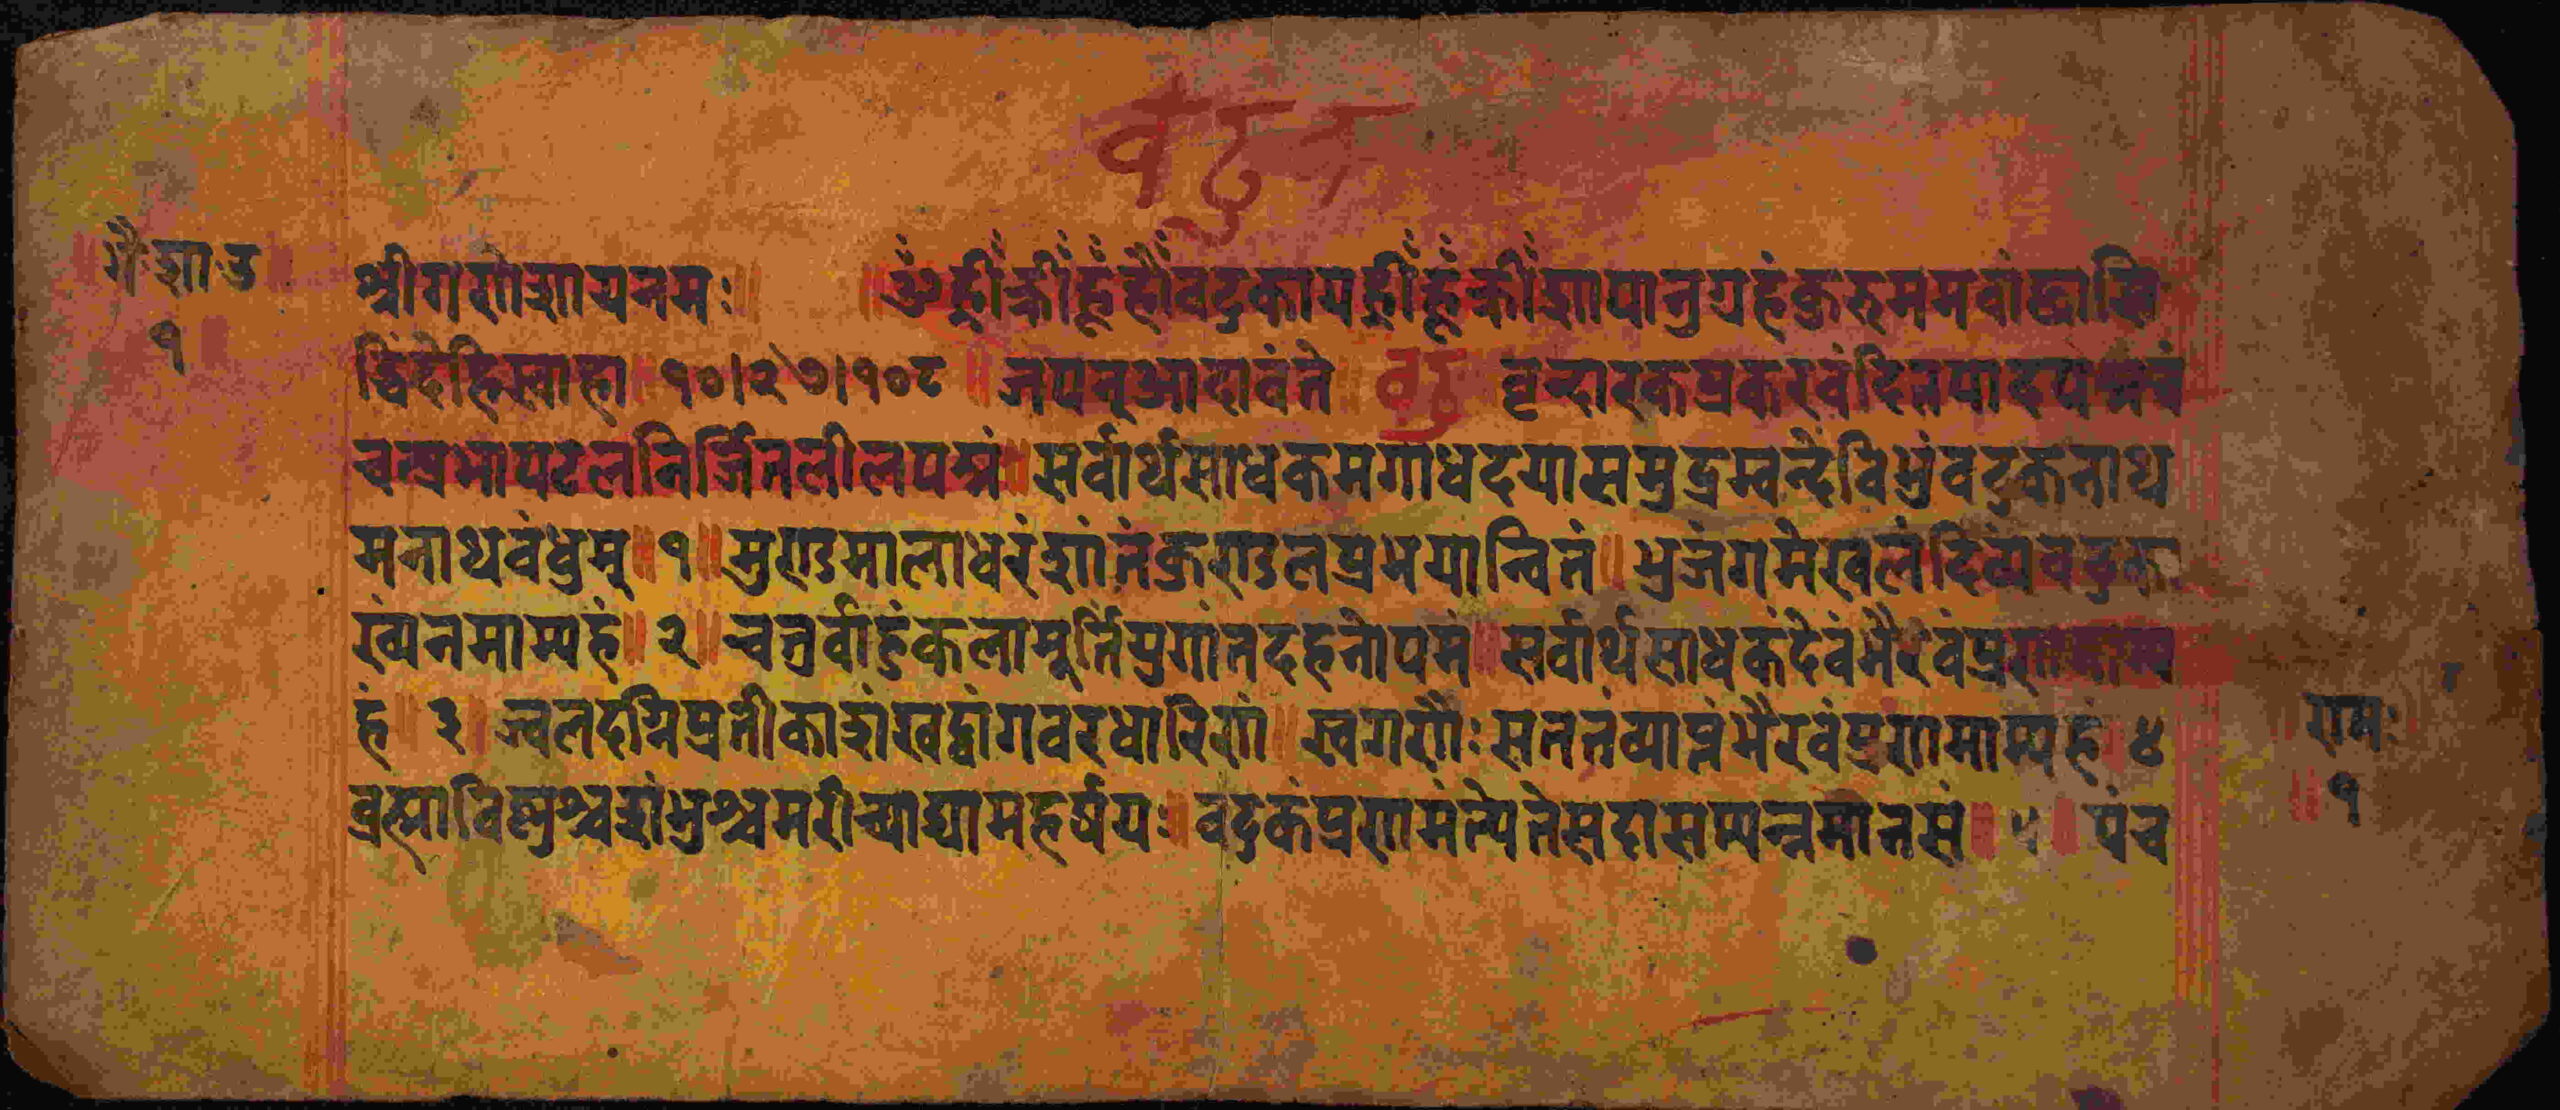 वटुन
भै॰शा॰उ
१
श्रीगणेशायनमः॥ ॥ॐह्रींक्रींहूंहौंवटुकायह्रींहूंक्रींशापानुग्रहंकुरुममवांछासि
द्धिंदेहिस्वाहा॥१०।२७।१०८॥जपेत्आदावंते॥ वृन्दारकप्रकरवंदितपादपद्मं
चन्प्रभापटलनिर्जितलीलपद्मं॥सर्वार्थसाधकमगाधदयासमुद्रम्वन्देविभुंवटुकनाथ
मनाथवंधुम्॥१॥मुण्डमालाधरंशांतंकुण्डलप्रभयान्वितं॥भुजंगमेखलंदिव्यंवटुका
ख्यंनमाम्यहं॥२॥चतुर्वाहुंकलामूर्तिंयुगांतदहनोपमं॥सर्वार्थसाधकंदेवंभैरवंप्रणमाम्य
हं॥३॥ज्वलदग्निप्रतीकाशंखट्वांगवरधारिणं॥स्वगणैःसततंव्याप्तंभैरवंप्रणमाम्यहं॥४
व्रह्माविष्णुश्चशंभुश्चमरीच्याद्यामहर्षयः॥वटुकंप्रणमंत्येतेसदासम्पन्नमानसं॥५॥पंच
रामः
॥१